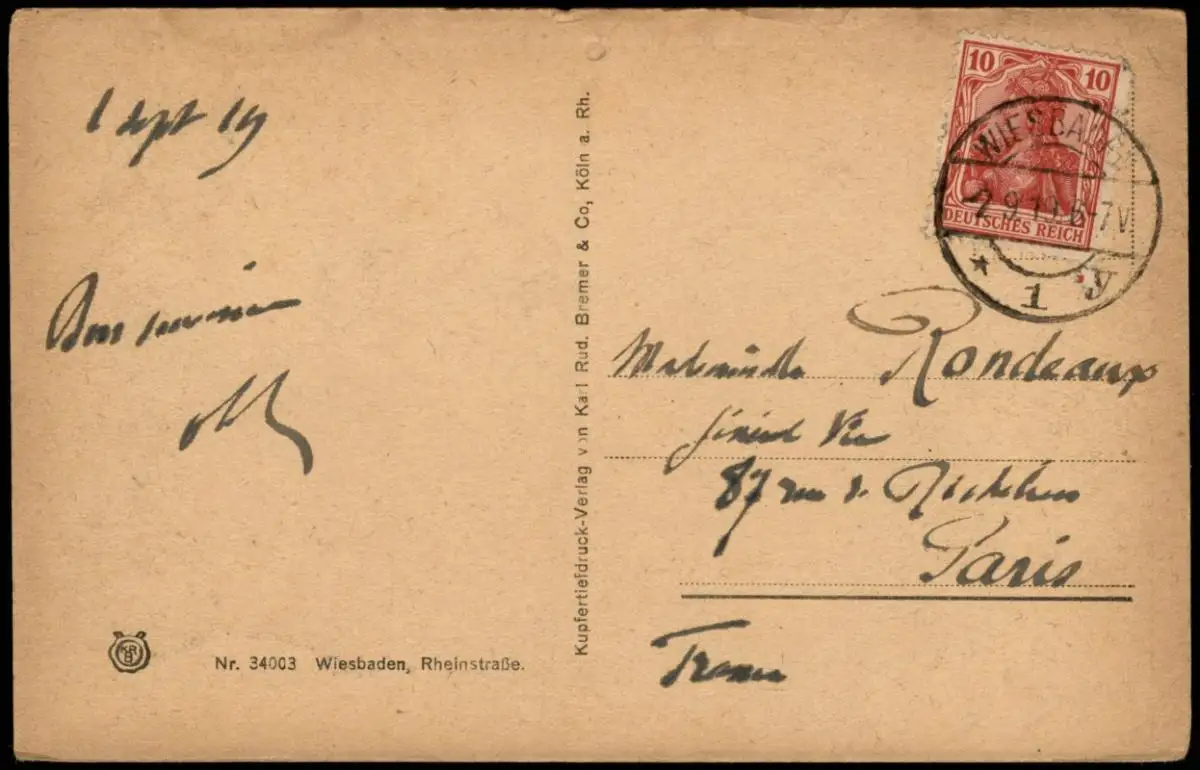 1 Sept 19
Bon souvenir
Nr. 34003 Wiesbaden, Rheinstraße.
Kupfertiefdruck-Verlag von Karl Rud. Bremer & Co, Köln a. Rh.
10 10
DEUTSCHES REICH
WIESBADEN
2.9.19.6-7V
* 1 y
Mademoiselle Rondeaux
Général Vie
87 rue de Richelieu
Paris
France